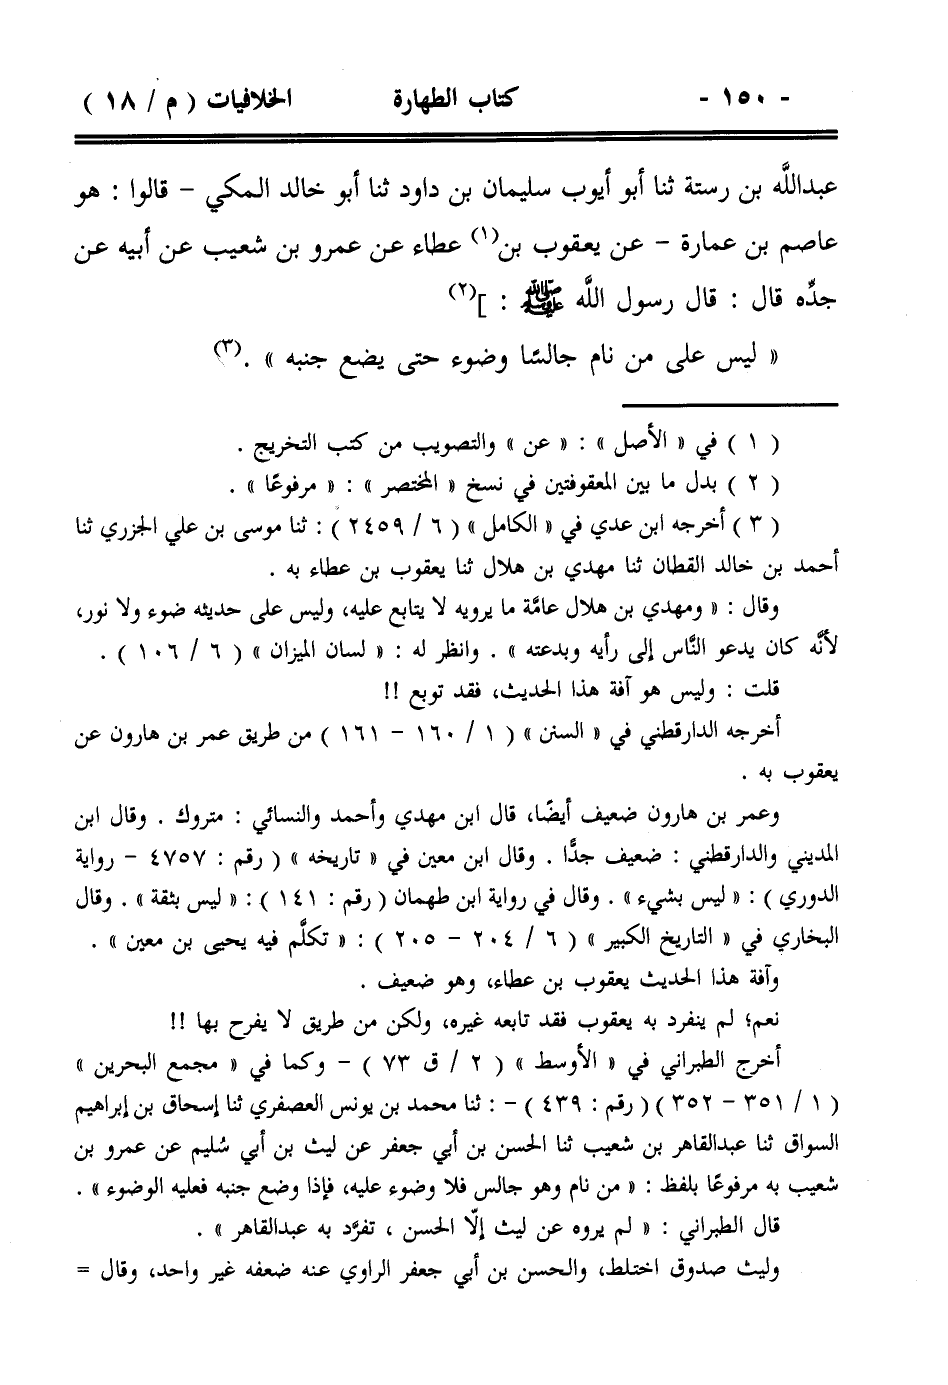 - ١٥٠ - كتاب الطهارة الخلافيات ( م / ١٨ )
عبداللَّه بن رستة ثنا أبو أيوب سليمان بن داود ثنا أبو خالد المكي – قالوا : هو
عاصم بن عمارة – عن يعقوب بن(١) عطاء عن عمرو بن شعيب عن أبيه عن
جدِّه قال : قال رسول اللَّه ﷺ : ](٢)
« ليس على من نام جالسًا وضوء حتى يضع جنبه » .(٣)
( ١ ) في « الأصل » : « عن » والتصويب من كتب التخريج .
( ٢ ) بدل ما بين المعقوفتين في نسخ « المختصر » : « مرفوعًا » .
( ٣ ) أخرجه ابن عدي في « الكامل » ( ٦ / ٢٤٥٩ ) : ثنا موسى بن علي الجزري ثنا
أحمد بن خالد القطان ثنا مهدي بن هلال ثنا يعقوب بن عطاء به .
وقال : « ومهدي بن هلال عامَّة ما يرويه لا يتابع عليه، وليس على حديثه ضوء ولا نور،
لأنَّه كان يدعو النَّاس إلى رأيه وبدعته » . وانظر له : « لسان الميزان » ( ٦ / ١٠٦ ) .
قلت : وليس هو آفة هذا الحديث، فقد توبع !!
أخرجه الدارقطني في « السنن » ( ١ / ١٦٠ – ١٦١ ) من طريق عمر بن هارون عن
يعقوب به .
وعمر بن هارون ضعيف أيضًا، قال ابن مهدي وأحمد والنسائي : متروك . وقال ابن
المديني والدارقطني : ضعيف جدًّا . وقال ابن معين في « تاريخه » ( رقم : ٤٧٥٧ – رواية
الدوري ) : « ليس بشيء » . وقال في رواية ابن طهمان ( رقم : ١٤١ ) : « ليس بثقة » . وقال
البخاري في « التاريخ الكبير » ( ٦ / ٢٠٤ – ٢٠٥ ) : « تكلَّم فيه يحيى بن معين » .
وآفة هذا الحديث يعقوب بن عطاء، وهو ضعيف .
نعم؛ لم ينفرد به يعقوب فقد تابعه غيره، ولكن من طريق لا يفرح بها !!
أخرج الطبراني في « الأوسط » ( ٢ / ق ٧٣ ) – وكما في « مجمع البحرين »
( ١ / ٣٥١ – ٣٥٢ ) ( رقم : ٤٣٩ ) – : ثنا محمد بن يونس العصفري ثنا إسحاق بن إبراهيم
السواق ثنا عبدالقاهر بن شعيب ثنا الحسن بن أبي جعفر عن ليث بن أبي سُليم عن عمرو بن
شعيب به مرفوعًا بلفظ : « من نام وهو جالس فلا وضوء عليه، فإذا وضع جنبه فعليه الوضوء » .
قال الطبراني : « لم يروه عن ليث إلّا الحسن ، تفرَّد به عبدالقاهر » .
وليث صدوق اختلط، والحسن بن أبي جعفر الراوي عنه ضعفه غير واحد، وقال =